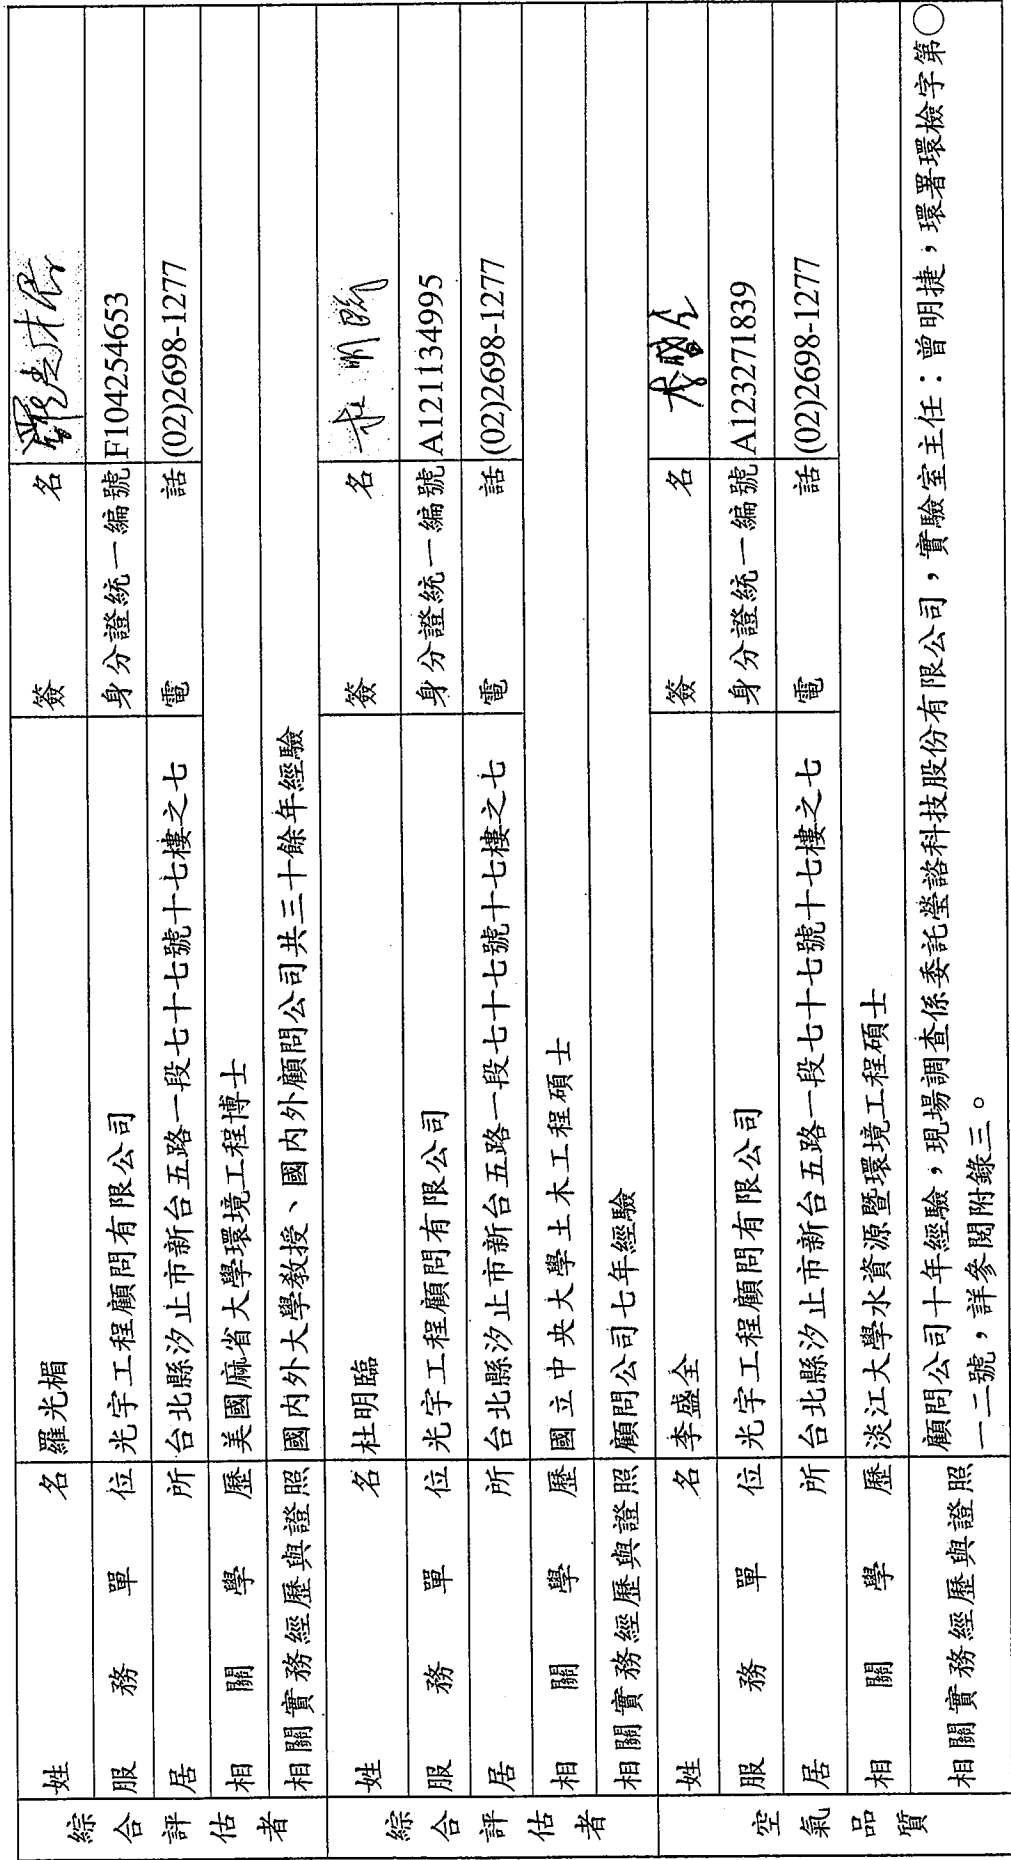 綜合評估者
姓名 羅光楣 簽名 羅光楣
服務單位 光宇工程顧問有限公司 身分證統一編號 F104254653
居所 台北縣汐止市新台五路一段七十七號十七樓之七 電話 (02)2698-1277
相關學歷 美國麻省大學環境工程博士
相關實務經歷與證照 國內外大學教授、國內外顧問公司共三十餘年經驗
綜合評估者
姓名 杜明臨 簽名 杜明臨
服務單位 光宇工程顧問有限公司 身分證統一編號 A121134995
居所 台北縣汐止市新台五路一段七十七號十七樓之七 電話 (02)2698-1277
相關學歷 國立中央大學土木工程碩士
相關實務經歷與證照 顧問公司七年經驗
空氣品質
姓名 李盛全 簽名
服務單位 光宇工程顧問有限公司 身分證統一編號 A123271839
居所 台北縣汐止市新台五路一段七十七號十七樓之七 電話 (02)2698-1277
相關學歷 淡江大學水資源暨環境工程碩士
相關實務經歷與證照 顧問公司十年經驗；現場調查係委託瑩諮科技股份有限公司，實驗室主任：曾明捷，環署環檢字第○
一二號，詳參閱附錄三。